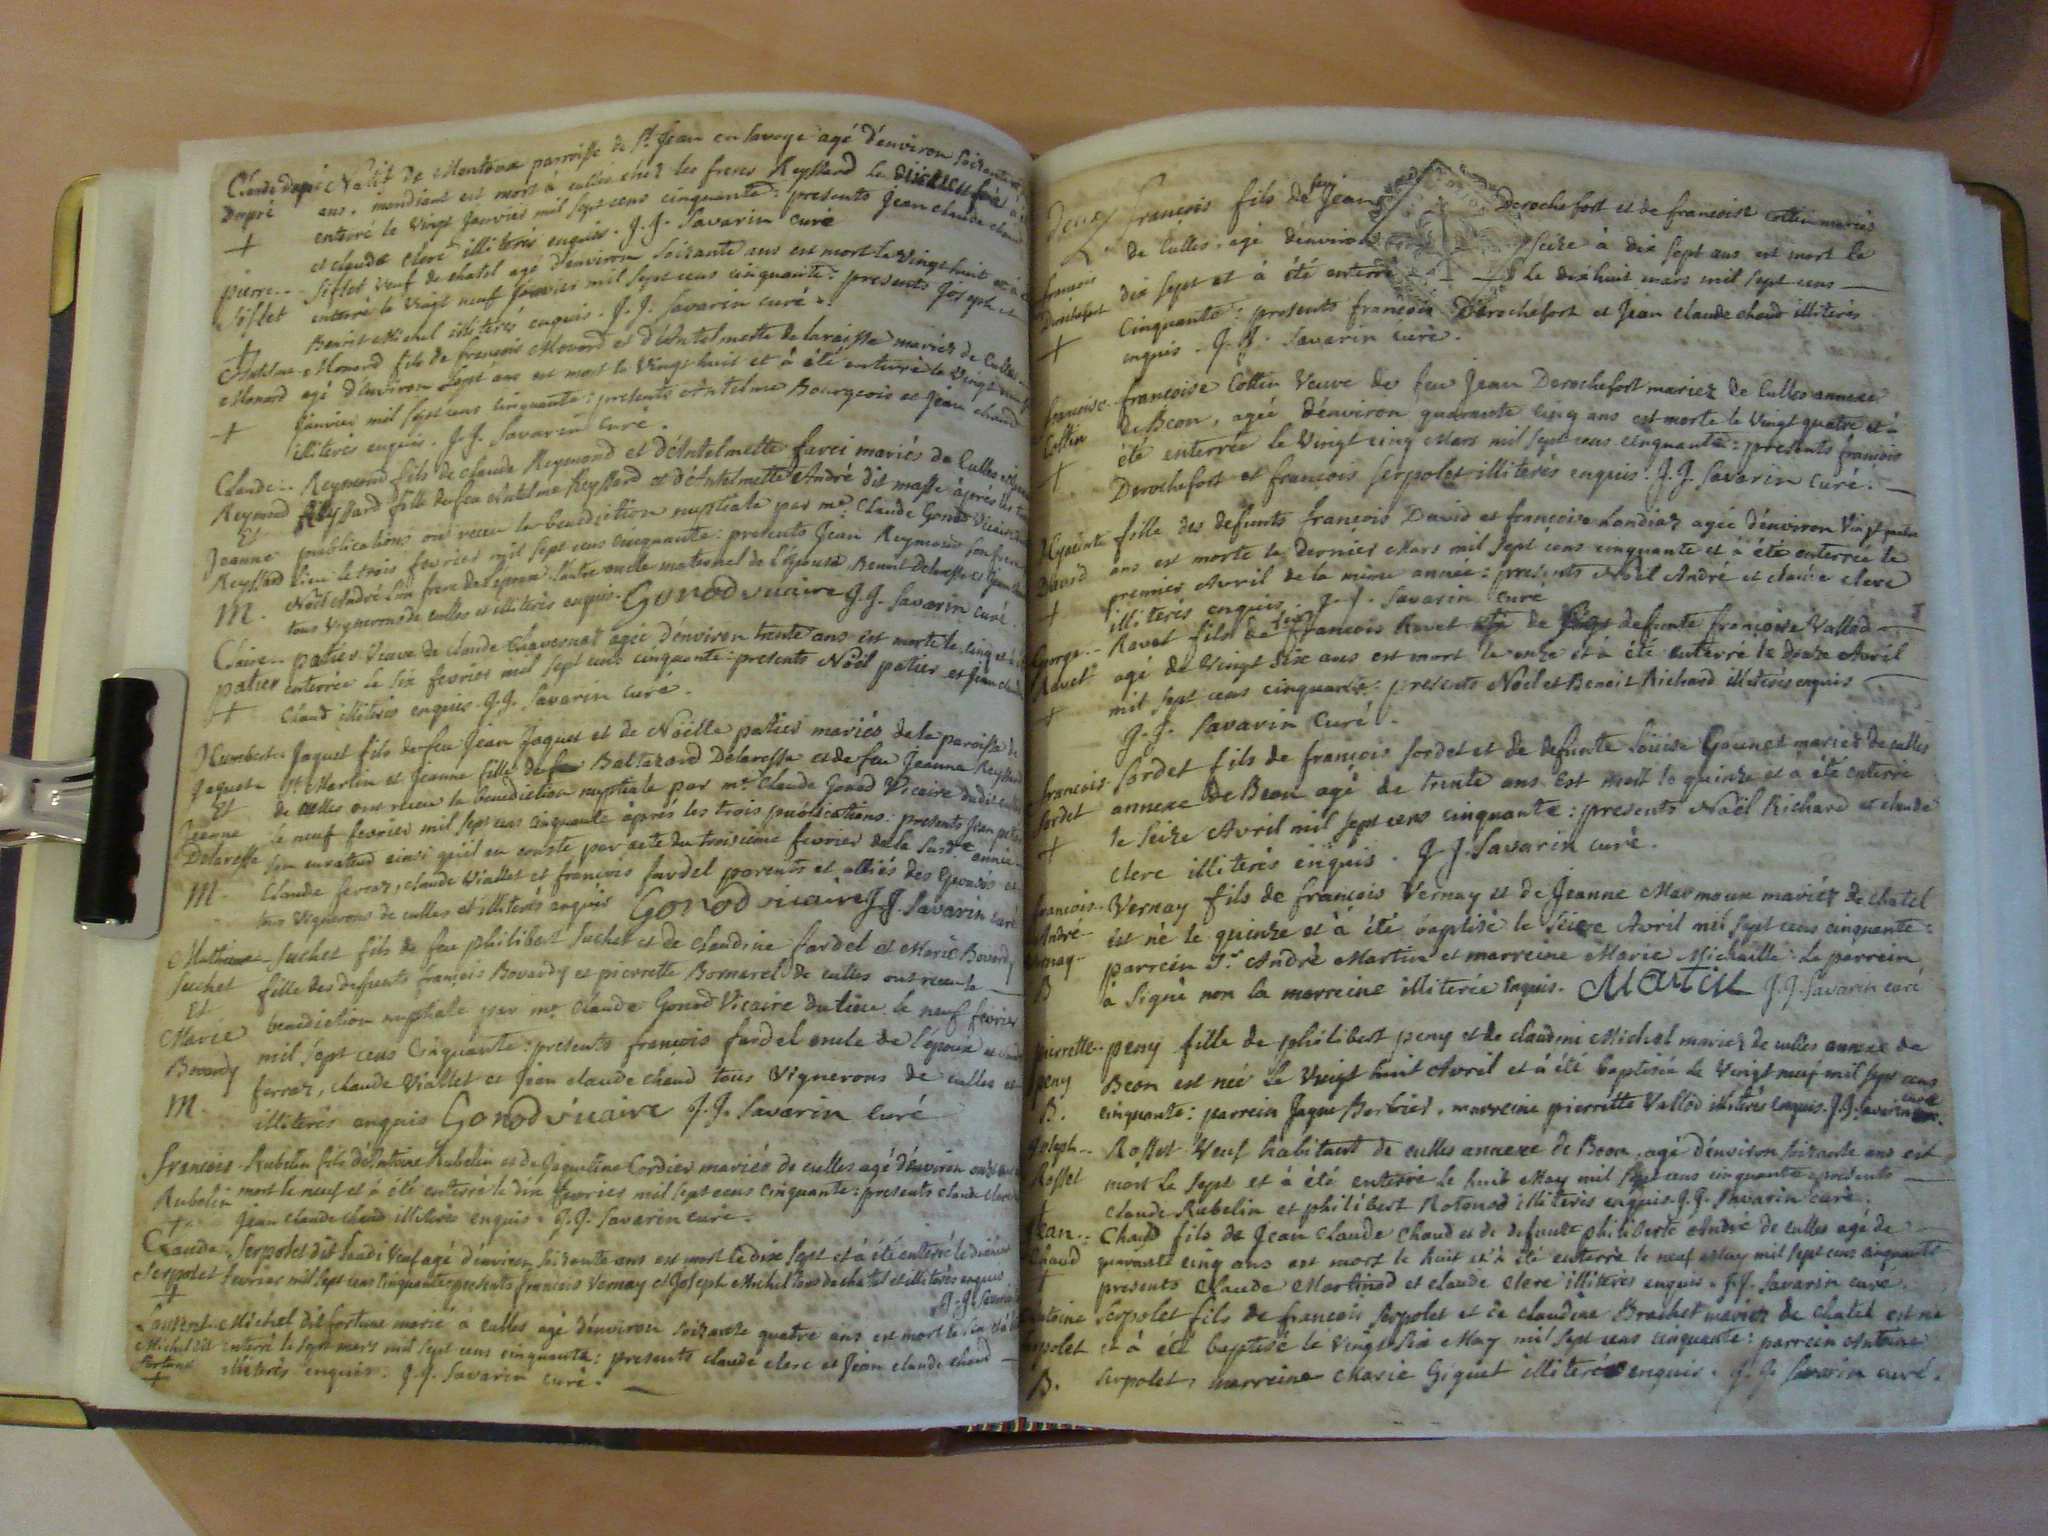 Claude dupré Natif de Montdoux parroisse de St Jean en Savoye agé d'environ soixante
Dupré ans, mendiant est mort à culles chéz les freres Reyssard le
+ enterré le vingt Janvier mil sept cens cinquante: presents Jean claude chaud
et claude clerc illiterés enquis. J. J. Savarin curé
pierre.. Siflet veuf de châtel agé d'environ soixante ans est mort le vingt huit et à
Siflet enterré le vingt neuf Janvier mil sept cens cinquante: presents Joseph et
+ Benoit Michel illiterés enquis. J. J. Savarin curé.
Antelme Monard fils de françois Monard et d'Antelmette delaraisse mariéz de Culles
Monard agé d'environ sept ans est mort le vingt huit et à été enterré le vingt neuf
+ Janvier mil sept cens cinquante: presents Antelme Bourgeois et Jean claude
illiterés enquis. J. J. Savarin Curé.
Claude.. Reymond fils de claude Reymond et d'Antelmette farci mariés de Culles
Reymond Reyssard fille de feu Antelme Reyssard et d'Antelmette André dit masse après les
Et publications ont receu la benediction nuptiale par mr. Claude Gonod Vicaire
Jeanne lieu le trois fevrier mil sept cens cinquante: presents Jean Reymond son frere
Reyssard Noël André l'un frere de l'époux l'autre oncle maternel de l'épouse, Benoit Delaresse et
M. tous vignerons de culles et illiterés enquis. Gonod vicaire J. J. Savarin curé.
Claire.. patier veuve de claude Chavernat agée d'environ trente ans est morte le cinq et à
patier enterrée le six fevrier mil sept cens cinquante: presents Noël patier et Jean claude
++ Chaud illiterés enquis. J. J. Savarin curé.
Humbert.. Jaquet fils de feu Jean Jaquet et de Noëlle patier mariés de la paroisse de
Jaquet St Martin et Jeanne fille de feu Baltazard Delaresse et de feu Jeanne Reyssard
Et de culles ont receu la benediction nuptiale par mr. Claude Gonod Vicaire dudit
Jeanne le neuf fevrier mil sept cens cinquante après les trois publications: presents Jean patier
Delaresse son curateur ainsi qu'il en conste par acte du troisieme fevrier de la susd.e année
M. Claude ferraz, claude Viallet et françois fardel parents et alliés des Epousés et
tous vignerons de culles et illiterés enquis Gonod vicaire J. J. Savarin curé
Mathieu Suchet fils de feu philibert Suchet et de claudine fardel et Marie Bovardy
Suchet fille des defunts françois Bovardy et pierrette Bornarel de culles ont receu la
Et
Marie benediction nuptiale par mr. Claude Gonod Vicaire du lieu le neuf fevrier
Bovardy mil sept cens cinquante: presents françois fardel oncle de l'époux et
M. ferraz, claude Viallet et Jean claude chaud tous vignerons de culles et
illiterés enquis Gonod vicaire J. J. Savarin Curé
françois Rubelin fils d'Antoine Rubelin et de Jaqueline Cordier mariés de culles agé d'environ
Rubelin mort le neuf et à été enterré le dix fevrier mil sept cens cinquante: presents claude clerc
+ Jean claude chaud illiterés enquis. J. J. Savarin curé.
Claude. Serpolet dit Saudi Veuf agé d'environ soixante ans est mort le dix sept et à été enterré le dixhuit
Serpolet fevrier mil sept cens cinquante presents françois Vernay et Joseph Michel tous de chatel et illiterés enquis
+ J. J. Savarin
Laurent Michel dit fortune marié à culles agé d'environ soixante quatre ans est mort le six et à
Michel dit enterré le sept mars mil sept cens cinquante: presents claude clerc et Jean claude chaud
fortune illiterés enquis. J. J. Savarin curé.
+
Deux françois fils de feu Jean Derochefort et de françoise Cottin mariés
de Culles, agé d'environ seize à dix sept ans est mort le
françois dix sept et à été enterré le dixhuit mars mil sept cens
Derochefort Cinquante: presents françois Derochefort et Jean claude chaud illiterés
+ enquis. J. J. Savarin curé.
françoise. françoise Cottin veuve de feu Jean Derochefort mariez de Culles annexe
Cottin de Beon, agée d'environ quarante cinq ans est morte le vingt quatre et à
+ été enterrée le vingt cinq Mars mil sept cens cinquante: presents françois
Derochefort et françois Serpolet illiterés enquis. J. J. Savarin Curé.
Hyacinte fille des defunts françois David et françoise Landiaz agée d'environ vingt quatre
David ans est morte le dernier Mars mil sept cens cinquante et à été enterrée le
+ premier Avril de la même année: presents Noël André et claude clerc
illiterés enquis. J. J. Savarin curé
George.. Ravet fils de feu françois Ravet de defunte françoise Vallod
Ravet agé de vingt six ans est mort le onze et à été enterré le douze Avril
+ mil sept cens cinquante: presents Noël et Benoit Richard illiterés enquis
J. J. Savarin Curé.
françois Sordet fils de françois Sordet et de defunte Loüise Gounet mariéz de culles
Sordet annexe de Beon agé de trente ans est mort le quinze et à été enterré
+ le seize Avril mil sept cens cinquante: presents Noël Richard et claude
clerc illiterés enquis. J. J. Savarin curé.
françois Vernay fils de françois Vernay et de Jeanne Marmoux mariéz de chatel
André est né le quinze et à été baptisé le seize Avril mil sept cens cinquante:
Vernay parrein Sr. André Martin et marreine Marie Michaille. Le parrein
B à signé non la marreine illiterée enquis. Martin J. J. Savarin curé
pierrette. peny fille de philibert peny et de claudine Michel mariez de culles annexe de
peny Beon est née le vingt huit Avril et à été baptisée le vingt neuf mil sept cens
B. cinquante: parrein Jaque Barbier, marreine pierrette Vallod illiterés enquis. J. J. Savarin curé
Joseph.. Rosset veuf habitant de culles annexe de Beon, agé d'environ soixante ans est
Rosset mort le sept et à été enterré le huit May mil sept cens cinquante: presents
+ claude Rubelin et philibert Rotonod illiterés enquis. J. J. Savarin curé.
Jean.. Chaud fils de Jean claude Chaud et de defunte philiberte André de culles agé de
Chaud quarante cinq ans est mort le huit et à été enterré le neuf May mil sept cens cinquante
+ presents claude Martinod et claude clerc illiterés enquis. J. J. Savarin curé.
Antoine Serpolet fils de françois Serpolet et de claudine Brachet mariez de chatel est né
Serpolet et à été baptisé le vingt six May mil sept cens cinquante: parrein Antoine
B. Serpolet, marreine Marie Giguet illiterés enquis. J. J. Savarin curé.